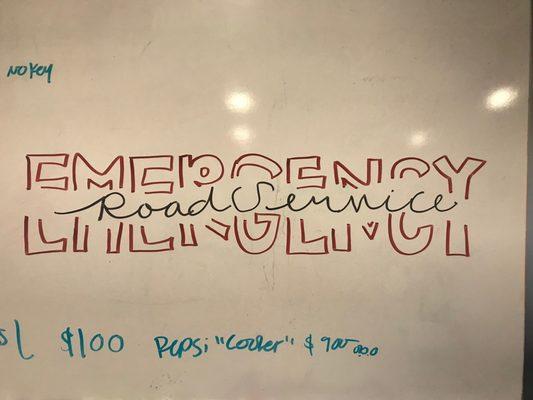 NO KEY
EMERGENCY
Road Service
$100 Pepsi "Cooler" $900